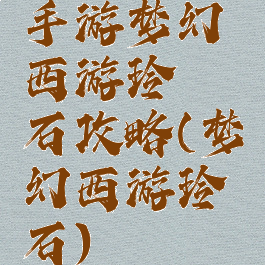 手游梦幻
西游玲
石攻略(梦
幻西游玲
石)